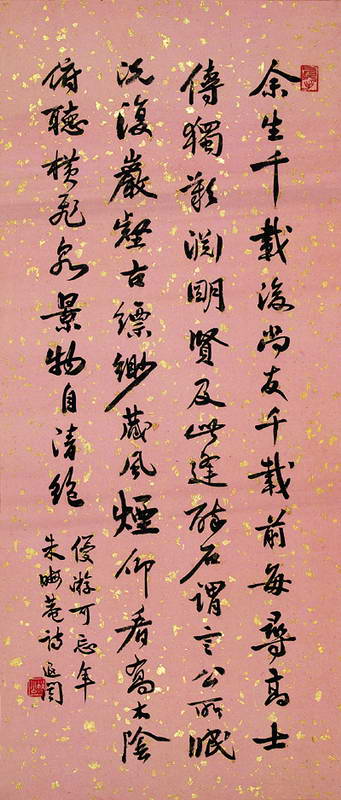 余生千載後尚友千載前每尋高士
傳獨歎渊明賢及此逢醉石謂言公所眠
況復巖壑古縹緲藏風煙仰看喬木陰
俯聽橫飛泉景物自清絕
優游可忘年
朱晦菴詩